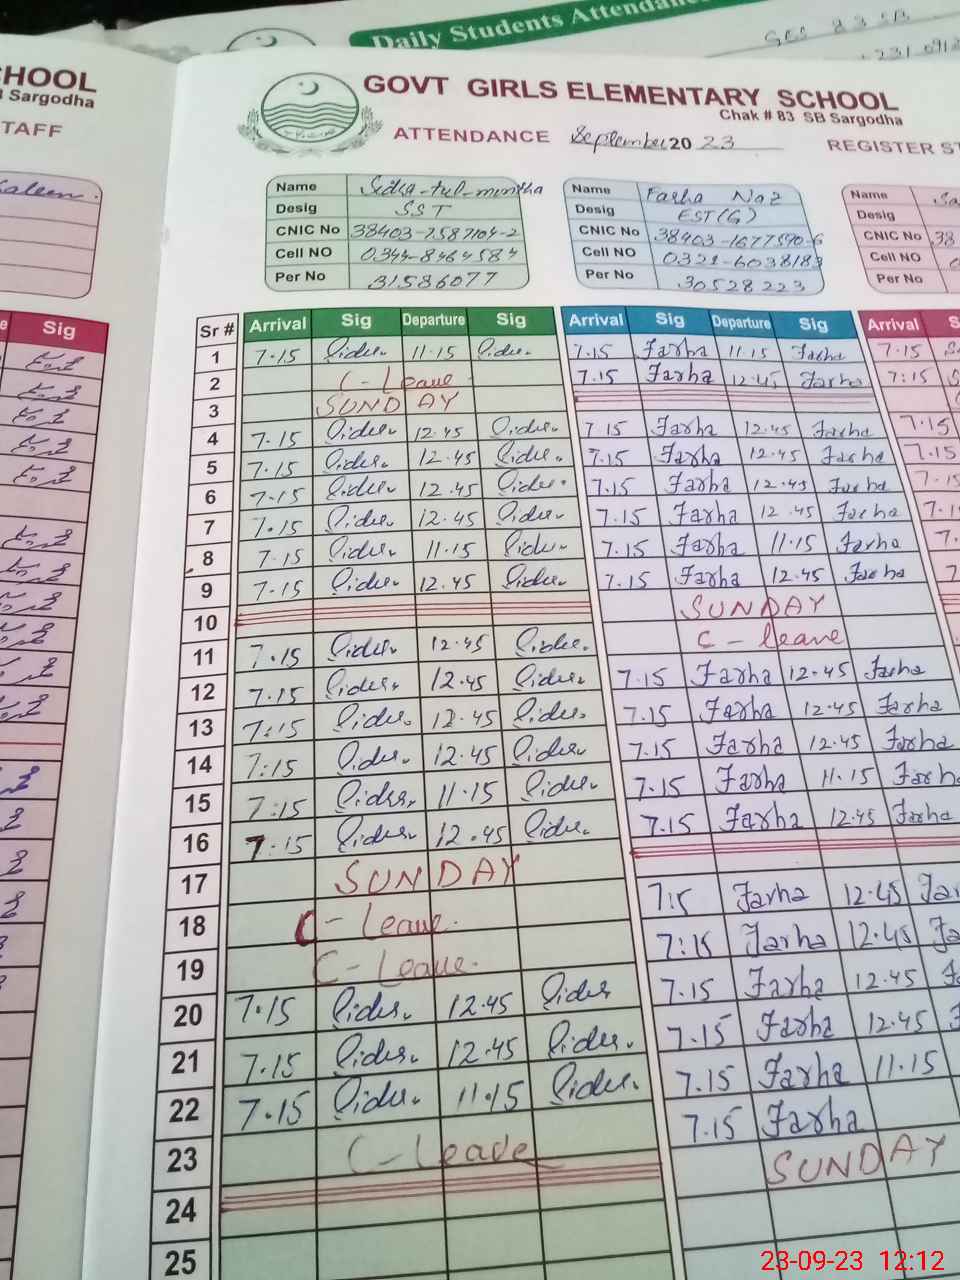 Daily Students Attendan
GES 83 SB
HOOL
Sargodha
TAFF
GOVT GIRLS ELEMENTARY SCHOOL
Chak # 83 SB Sargodha
ATTENDANCE September 20 23 REGISTER ST
Name Sidra-tul-muntha Name Farha Naz Name Sa
Desig SST Desig EST(G) Desig
CNIC No 38403-7587104-2 CNIC No 38403-1677590-6 CNIC No 38
Cell NO 0344-8464584 Cell NO 0321-6038183 Cell NO 0
Per No 31586077 Per No 30528223 Per No
Sig Sr # Arrival Sig Departure Sig Arrival Sig Departure Sig Arrival S
1 7.15 Sidra 11.15 Sidra 7.15 Farha 11.15 Farha 7.15
2 C-Leave 7.15 Farha 12.45 Farha 7:15
3 SUNDAY
4 7.15 Sidra 12.45 Sidra 7.15 Farha 12.45 Farha 7.15
5 7.15 Sidra 12.45 Sidra 7.15 Farha 12.45 Farha 7.15
6 7.15 Sidra 12.45 Sidra 7.15 Farha 12.45 Farha 7.15
7 7.15 Sidra 12.45 Sidra 7.15 Farha 12.45 Farha 7.1
8 7.15 Sidra 11.15 Sidra 7.15 Farha 11.15 Farha 7.
9 7.15 Sidra 12.45 Sidra 7.15 Farha 12.45 Farha 7
10 SUNDAY
11 7.15 Sidra 12.45 Sidra C-leave
12 7.15 Sidra 12.45 Sidra 7.15 Farha 12.45 Farha
13 7:15 Sidra 12.45 Sidra 7.15 Farha 12.45 Farha
14 7:15 Sidra 12.45 Sidra 7.15 Farha 12.45 Farha
15 7:15 Sidra 11.15 Sidra 7.15 Farha 11.15 Farha
16 7.15 Sidra 12.45 Sidra 7.15 Farha 12.45 Farha
17 SUNDAY
18 C-Leave. 7:15 Farha 12.45 Far
19 C-Leave. 7:15 Farha 12.45 Fa
20 7.15 Sidra 12.45 Sidra 7.15 Farha 12.45 F
21 7.15 Sidra 12.45 Sidra 7.15 Farha 12.45 F
22 7.15 Sidra 11.15 Sidra 7.15 Farha 11.15
23 C-Leave 7.15 Farha
24 SUNDAY
25
23-09-23 12:12